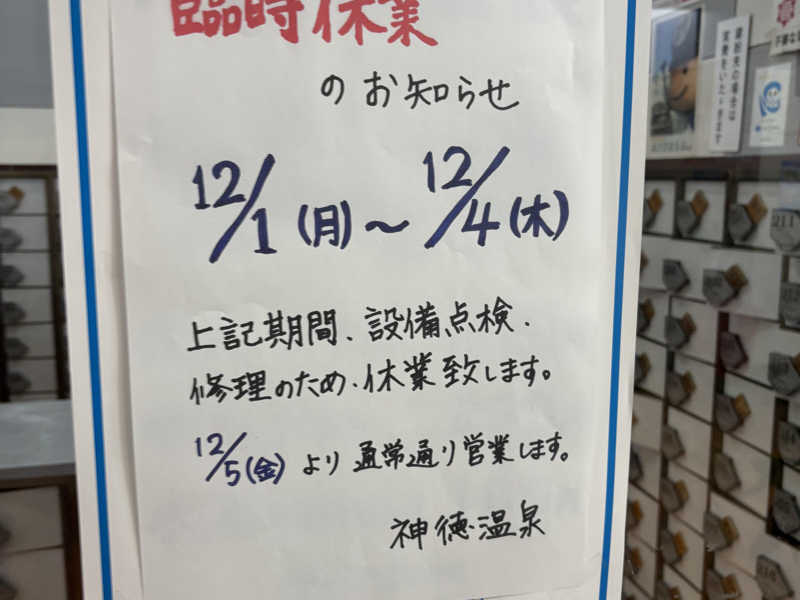 臨時休業
のお知らせ
12/1(月)～12/4(木)
上記期間、設備点検、
修理のため、休業致します。
12/5(金)より通常通り営業します。
神徳温泉
211